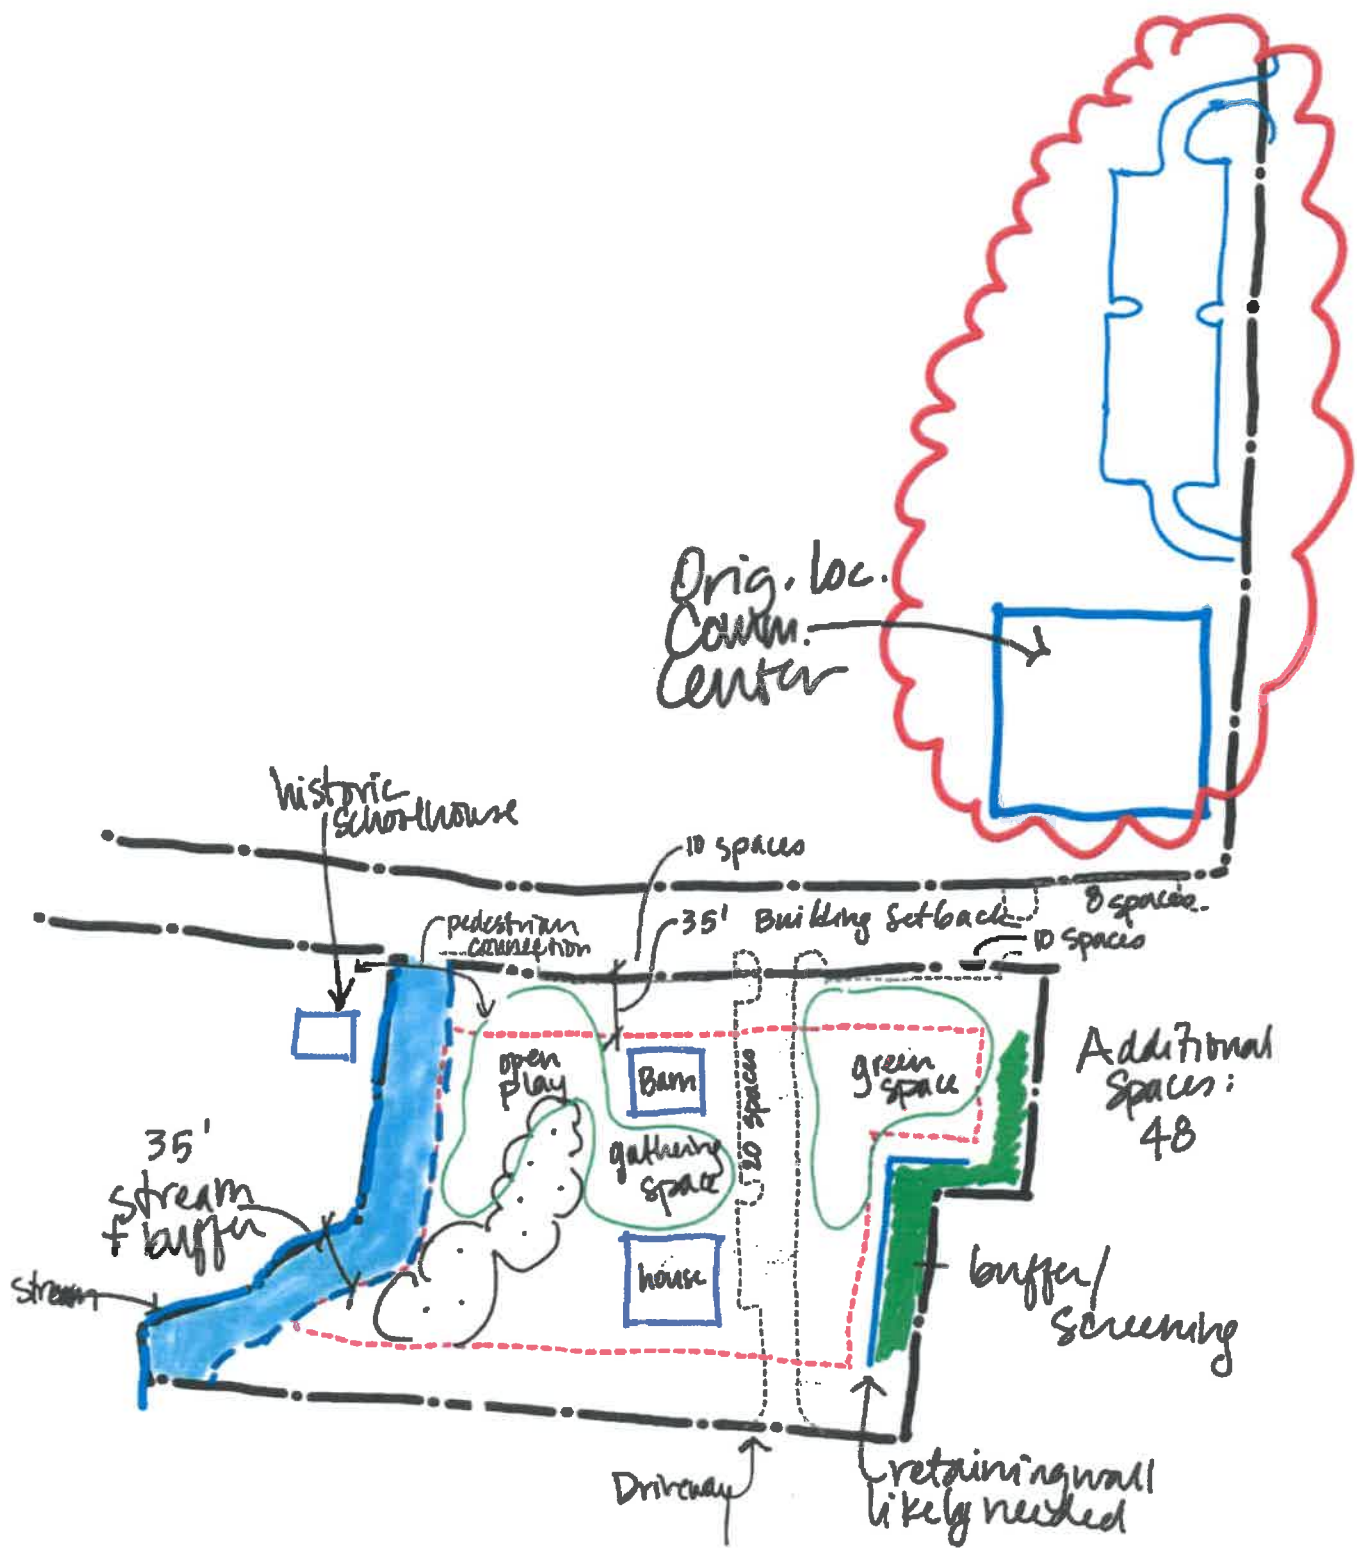 Orig. loc.
Comm.
Center
historic
schoolhouse
10 spaces
8 spaces.
pedestrian
connection
35' Building Setback
10 spaces
open
play
Barn
20 spaces
green
space
Additional
Spaces:
48
gathering
space
35'
stream
+ buffer
stream
house
buffer/
screening
Driveway
retaining wall
likely needed